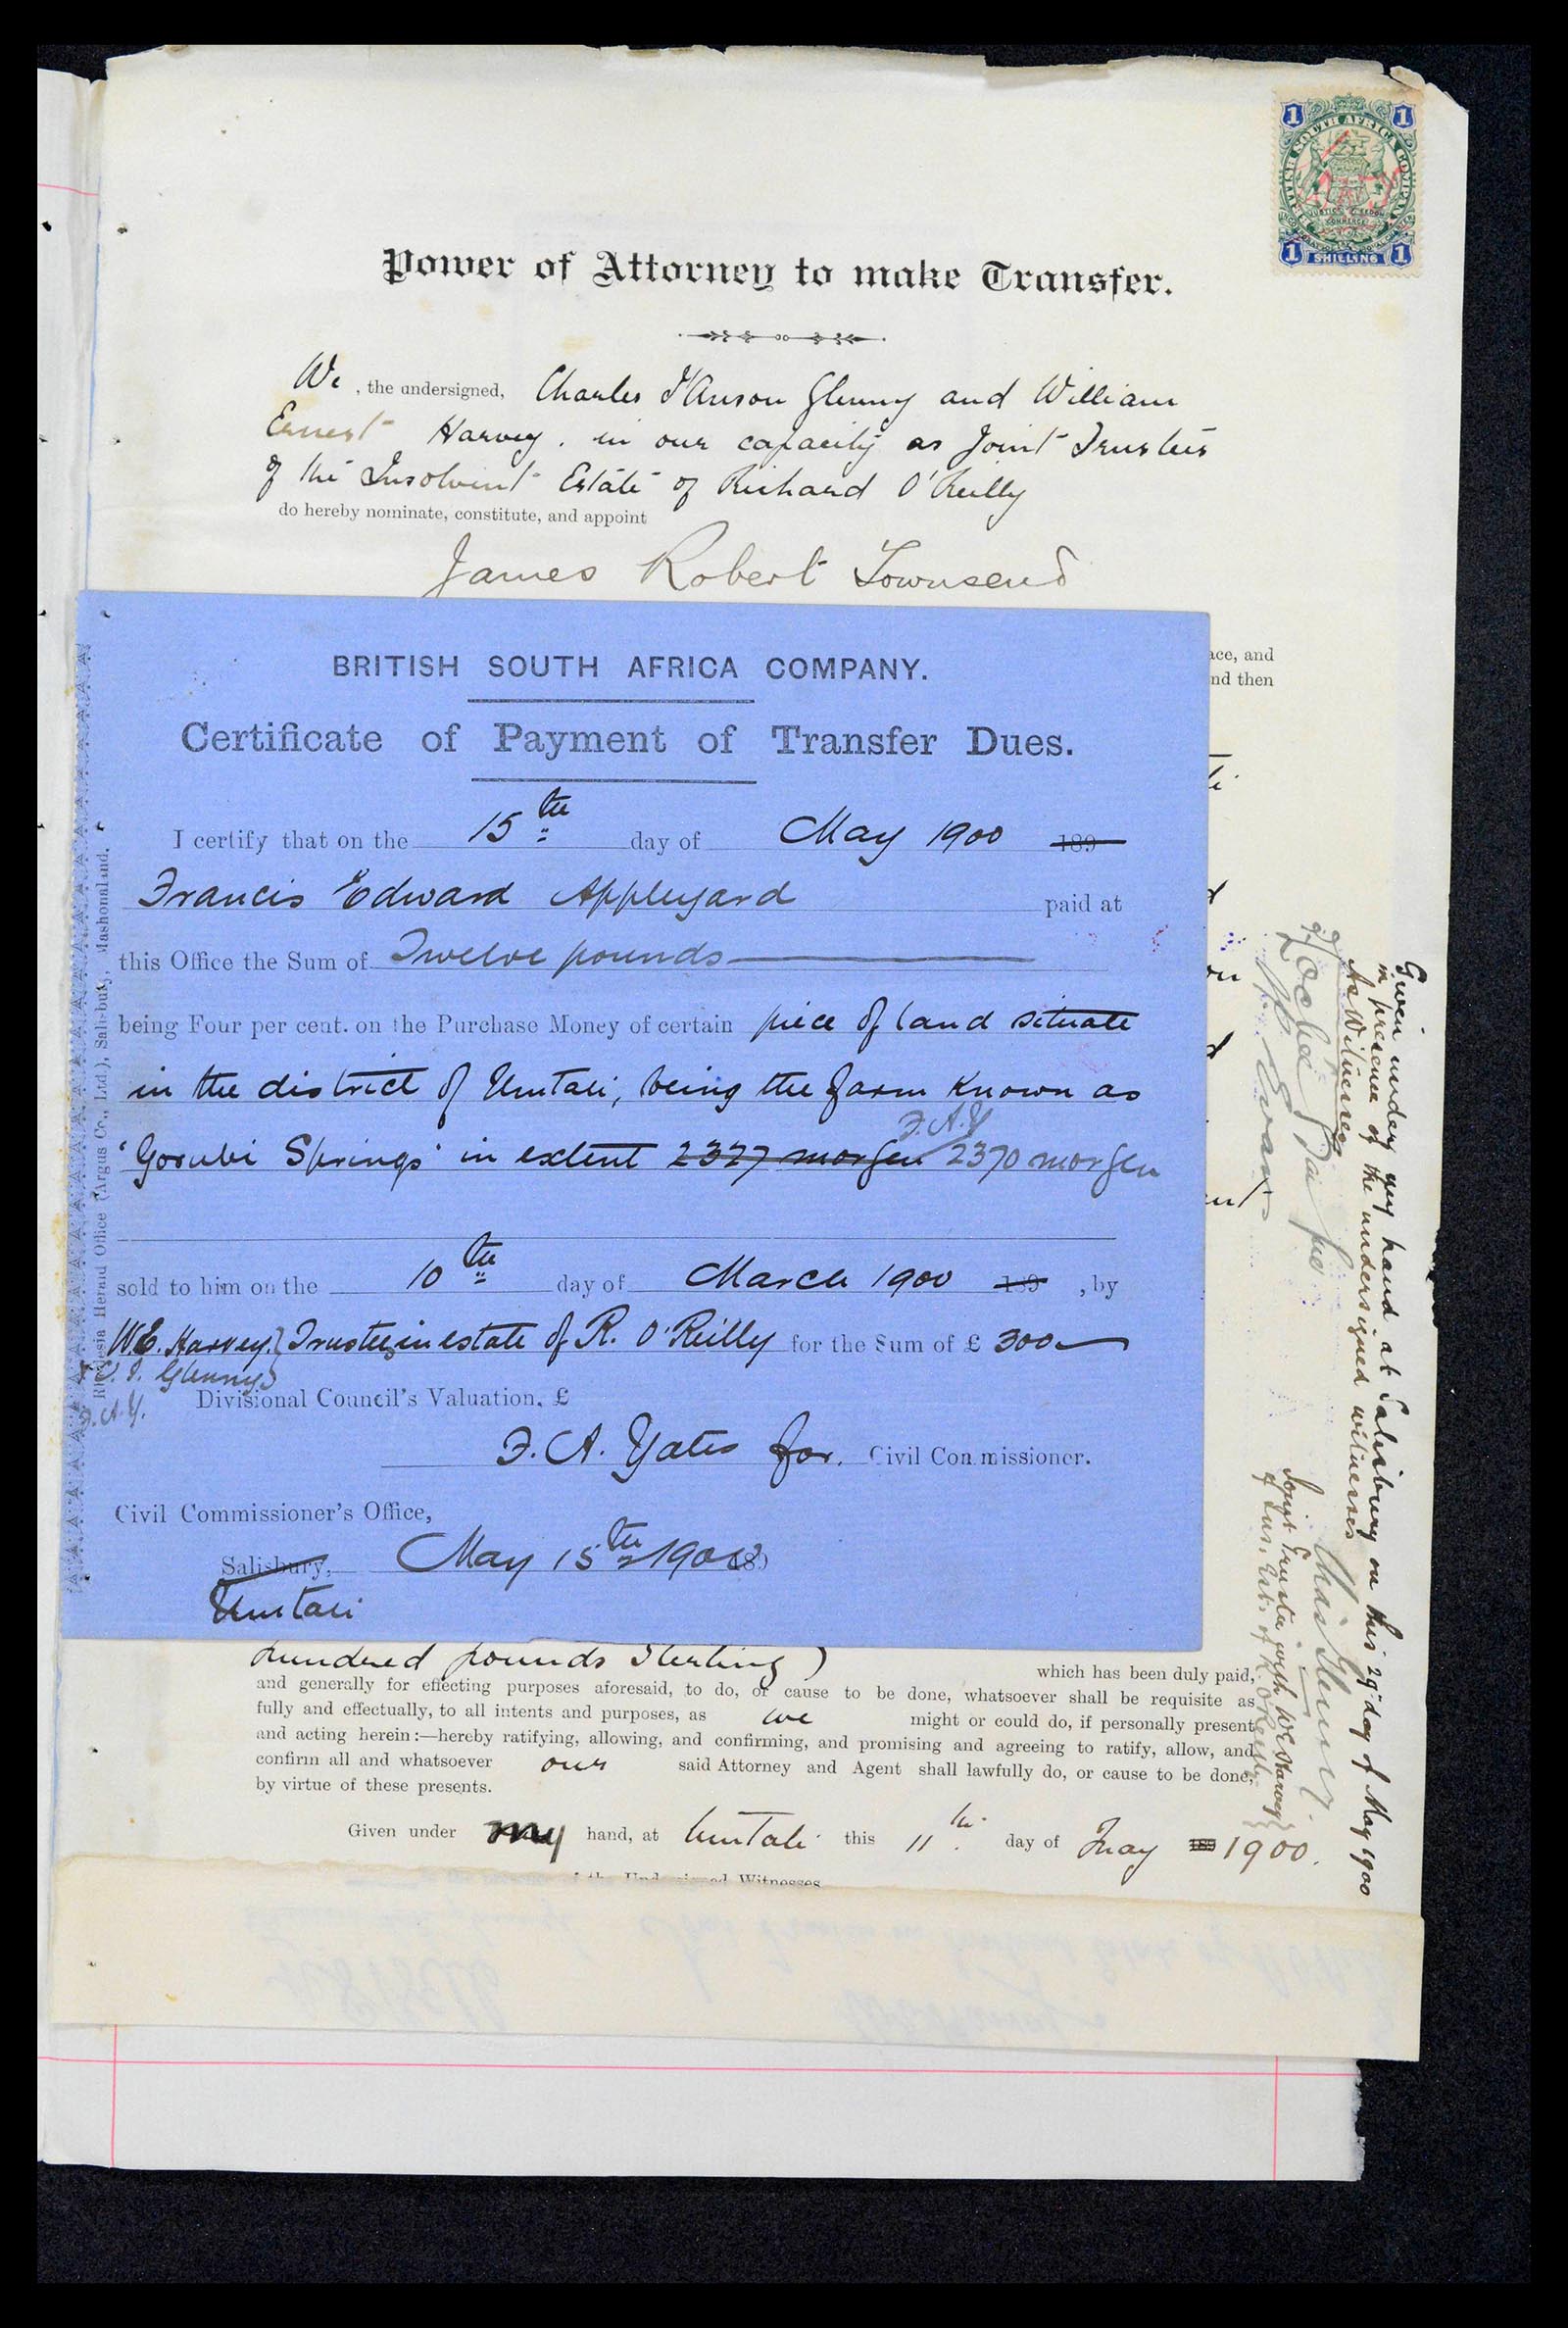 1 1
BRITISH SOUTH AFRICA COMPANY
JUSTICE FREEDOM
COMMERCE
1 SHILLING 1
Power of Attorney to make Transfer.
We, the undersigned, Charles I'Anson Glenny and William
Ernest Harvey. in our capacity as Joint Trustees
of the Insolvent Estate of Richard O'Reilly
do hereby nominate, constitute, and appoint
James Robert Townsend
ace, and
nd then
BRITISH SOUTH AFRICA COMPANY.
Certificate of Payment of Transfer Dues.
I certify that on the 15th day of May 1900 189
Francis Edward Appleyard paid at
this Office the Sum of Twelve pounds
being Four per cent. on the Purchase Money of certain piece of land situate
in the district of Umtali, being the farm known as
F.A.Y
'Gorubi Springs' in extent 2327 morgen 2370 morgen
sold to him on the 10th day of March 1900 189 , by
W.E. Harvey. } Trustees in estate of R. O'Reilly for the Sum of £ 300
C. I. Glenny
F.A.Y.
Divisional Council's Valuation, £
F. A. Yates for. Civil Commissioner.
Civil Commissioner's Office,
Salisbury, May 15th 1900 189
Umtali
Rhodesia Herald Office (Argus Co., Ltd.), Salisbury, Mashonaland.
hundred pounds Sterling)
which has been duly paid,
and generally for effecting purposes aforesaid, to do, or cause to be done, whatsoever shall be requisite as
fully and effectually, to all intents and purposes, as we might or could do, if personally present
and acting herein:—hereby ratifying, allowing, and confirming, and promising and agreeing to ratify, allow, and
confirm all and whatsoever our said Attorney and Agent shall lawfully do, or cause to be done,
by virtue of these presents.
Given under my hand, at Umtali this 11th. day of May 189 1900.
the Undersigned Witnesses
Given under my hand at Salisbury on this 29 day of May 1900
in presence of the undersigned witnesses
As Witnesses
Evans
Chas Glenny.
Joint Trustee with WE Harvey
of Ins. Est. of R. O'Reilly